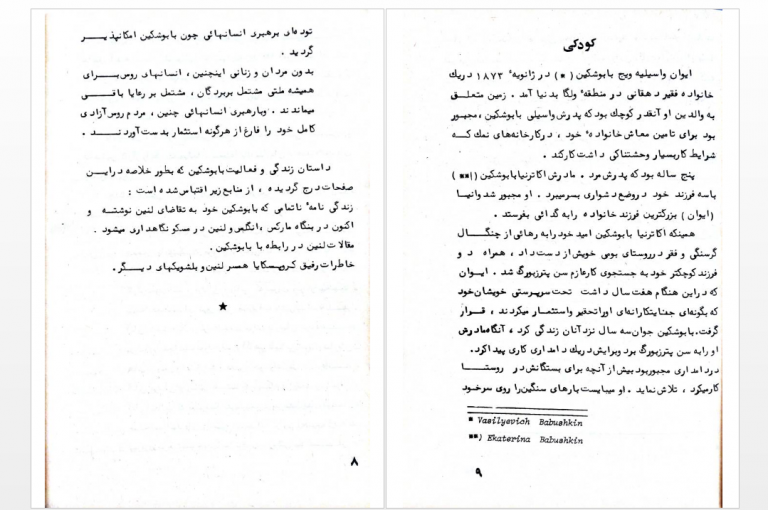 توده‌ای برهبری انسانهائی چون بابوشکین امکانپذیر
گردید .
بدون مردان و زنانی اینچنین ، انسانهای روس برای
همیشه ملتی مشتمل بر بردگان ، مشتمل بر رعایا باقی
میماندند . وبارهبری انسانهائی چنین ، مردم روس آزادی
کامل خود را فارغ از هرگونه استثمار بدست آوردند .
داستان زندگی و فعالیت بابوشکین که بطور خلاصه دراین
صفحات درج گردیده ، از منابع زیر اقتباس شده است :
زندگی نامهٔ ناتمامی که بابوشکین خود به تقاضای لنین نوشته و
اکنون در بنگاه مارکس ، انگلس و لنین در مسکو نگاهداری میشود .
مقالات لنین در رابطه با بابوشکین .
خاطرات رفیق کروپسکایا همسر لنین و بلشویکهای دیگر .
★
۸
کودکی
ایوان واسیلیه ویچ بابوشکین (*) در ژانویهٔ ۱۸۷۳ دریک
خانواده فقیر دهقانی در منطقهٔ ولگا بدنیا آمد . زمین متعلق
به والدین او آنقدر کوچک بود که پدرش واسیلی بابوشکین ، مجبور
بود برای تامین معاش خانوادهٔ خود ، درکارخانه‌های نمک که
شرایط کاربسیار وحشتناکی داشت کارکند .
پنج ساله بود که پدرش مرد . مادرش اکاترنیا بابوشکین (**)
باسه فرزند خود در وضع دشواری بسرمیبرد . او مجبور شد وانیا
(ایوان) بزرگترین فرزند خانواده رابه گدائی بفرستد .
همینکه اکاترنیا بابوشکین امید خود رابه رهائی از چنگال
گرسنگی و فقر درروستای بومی خویش ازدست داد ، همراه دو
فرزند کوچکتر خود به جستجوی کارعازم سن پترزبورگ شد . ایوان
که دراین هنگام هفت سال داشت تحت سرپرستی خویشان خود
که بگونه‌ای جنایتکارانه‌ای اوراتحقیر واستثمار میکردند ، قرار
گرفت . بابوشکین جوان سه سال نزد آنان زندگی کرد ، آنگاه مادرش
او رابه سن پترزبورگ برد وبرایش دریک دامداری کاری پیداکرد .
دردامداری مجبوربود بیش از آنچه برای بستگانش در روستا
کارمیکرد ، تلاش نماید . او میبایست بارهای سنگین را روی سرخود
* Vasilyevich Babushkin
**) Ekaterina Babushkin
۹